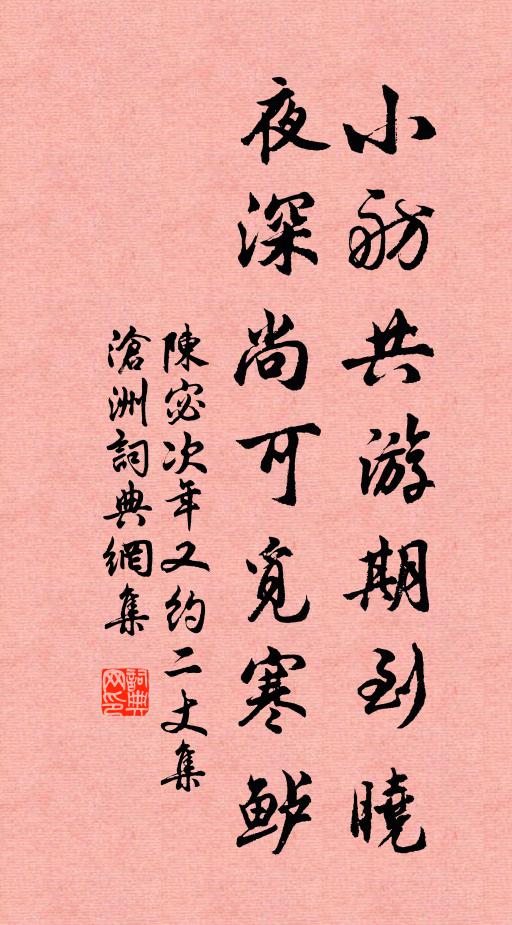 小舫共游期到曉
夜深尚可覓寒鲈
陳宓次年又約二丈集
滄洲詞典網集
詞典网印